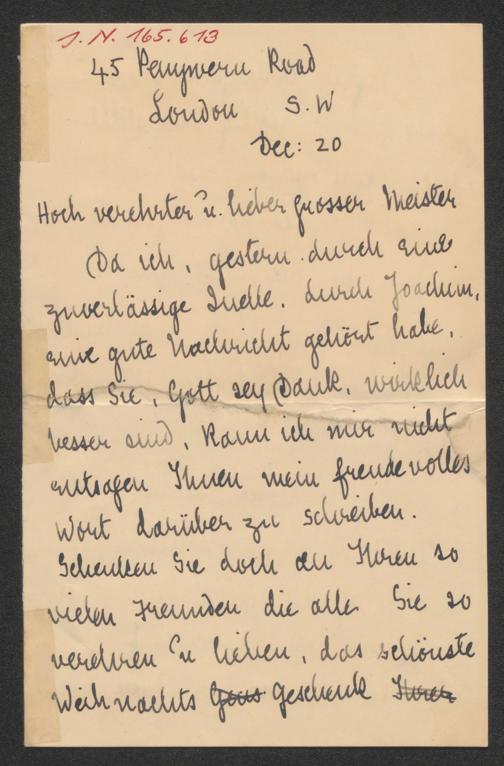 J.N. 165.613
45 Penywern Road
London S.W
Dec: 20
Hoch verehrter u. lieber grosser Meister
Da ich, gestern durch eine
zuverlässige Quelle, durch Joachim,
eine gute Nachricht gehört habe,
dass Sie, Gott sey Dank, wirklich
besser sind, kann ich mir nicht
entsagen Ihnen mein freudevolles
Wort darüber zu schreiben.
Schenken Sie doch an Ihren so
vielen Freunden die alle Sie so
verehren u lieben, das schönste
Weihnachts Geschenk